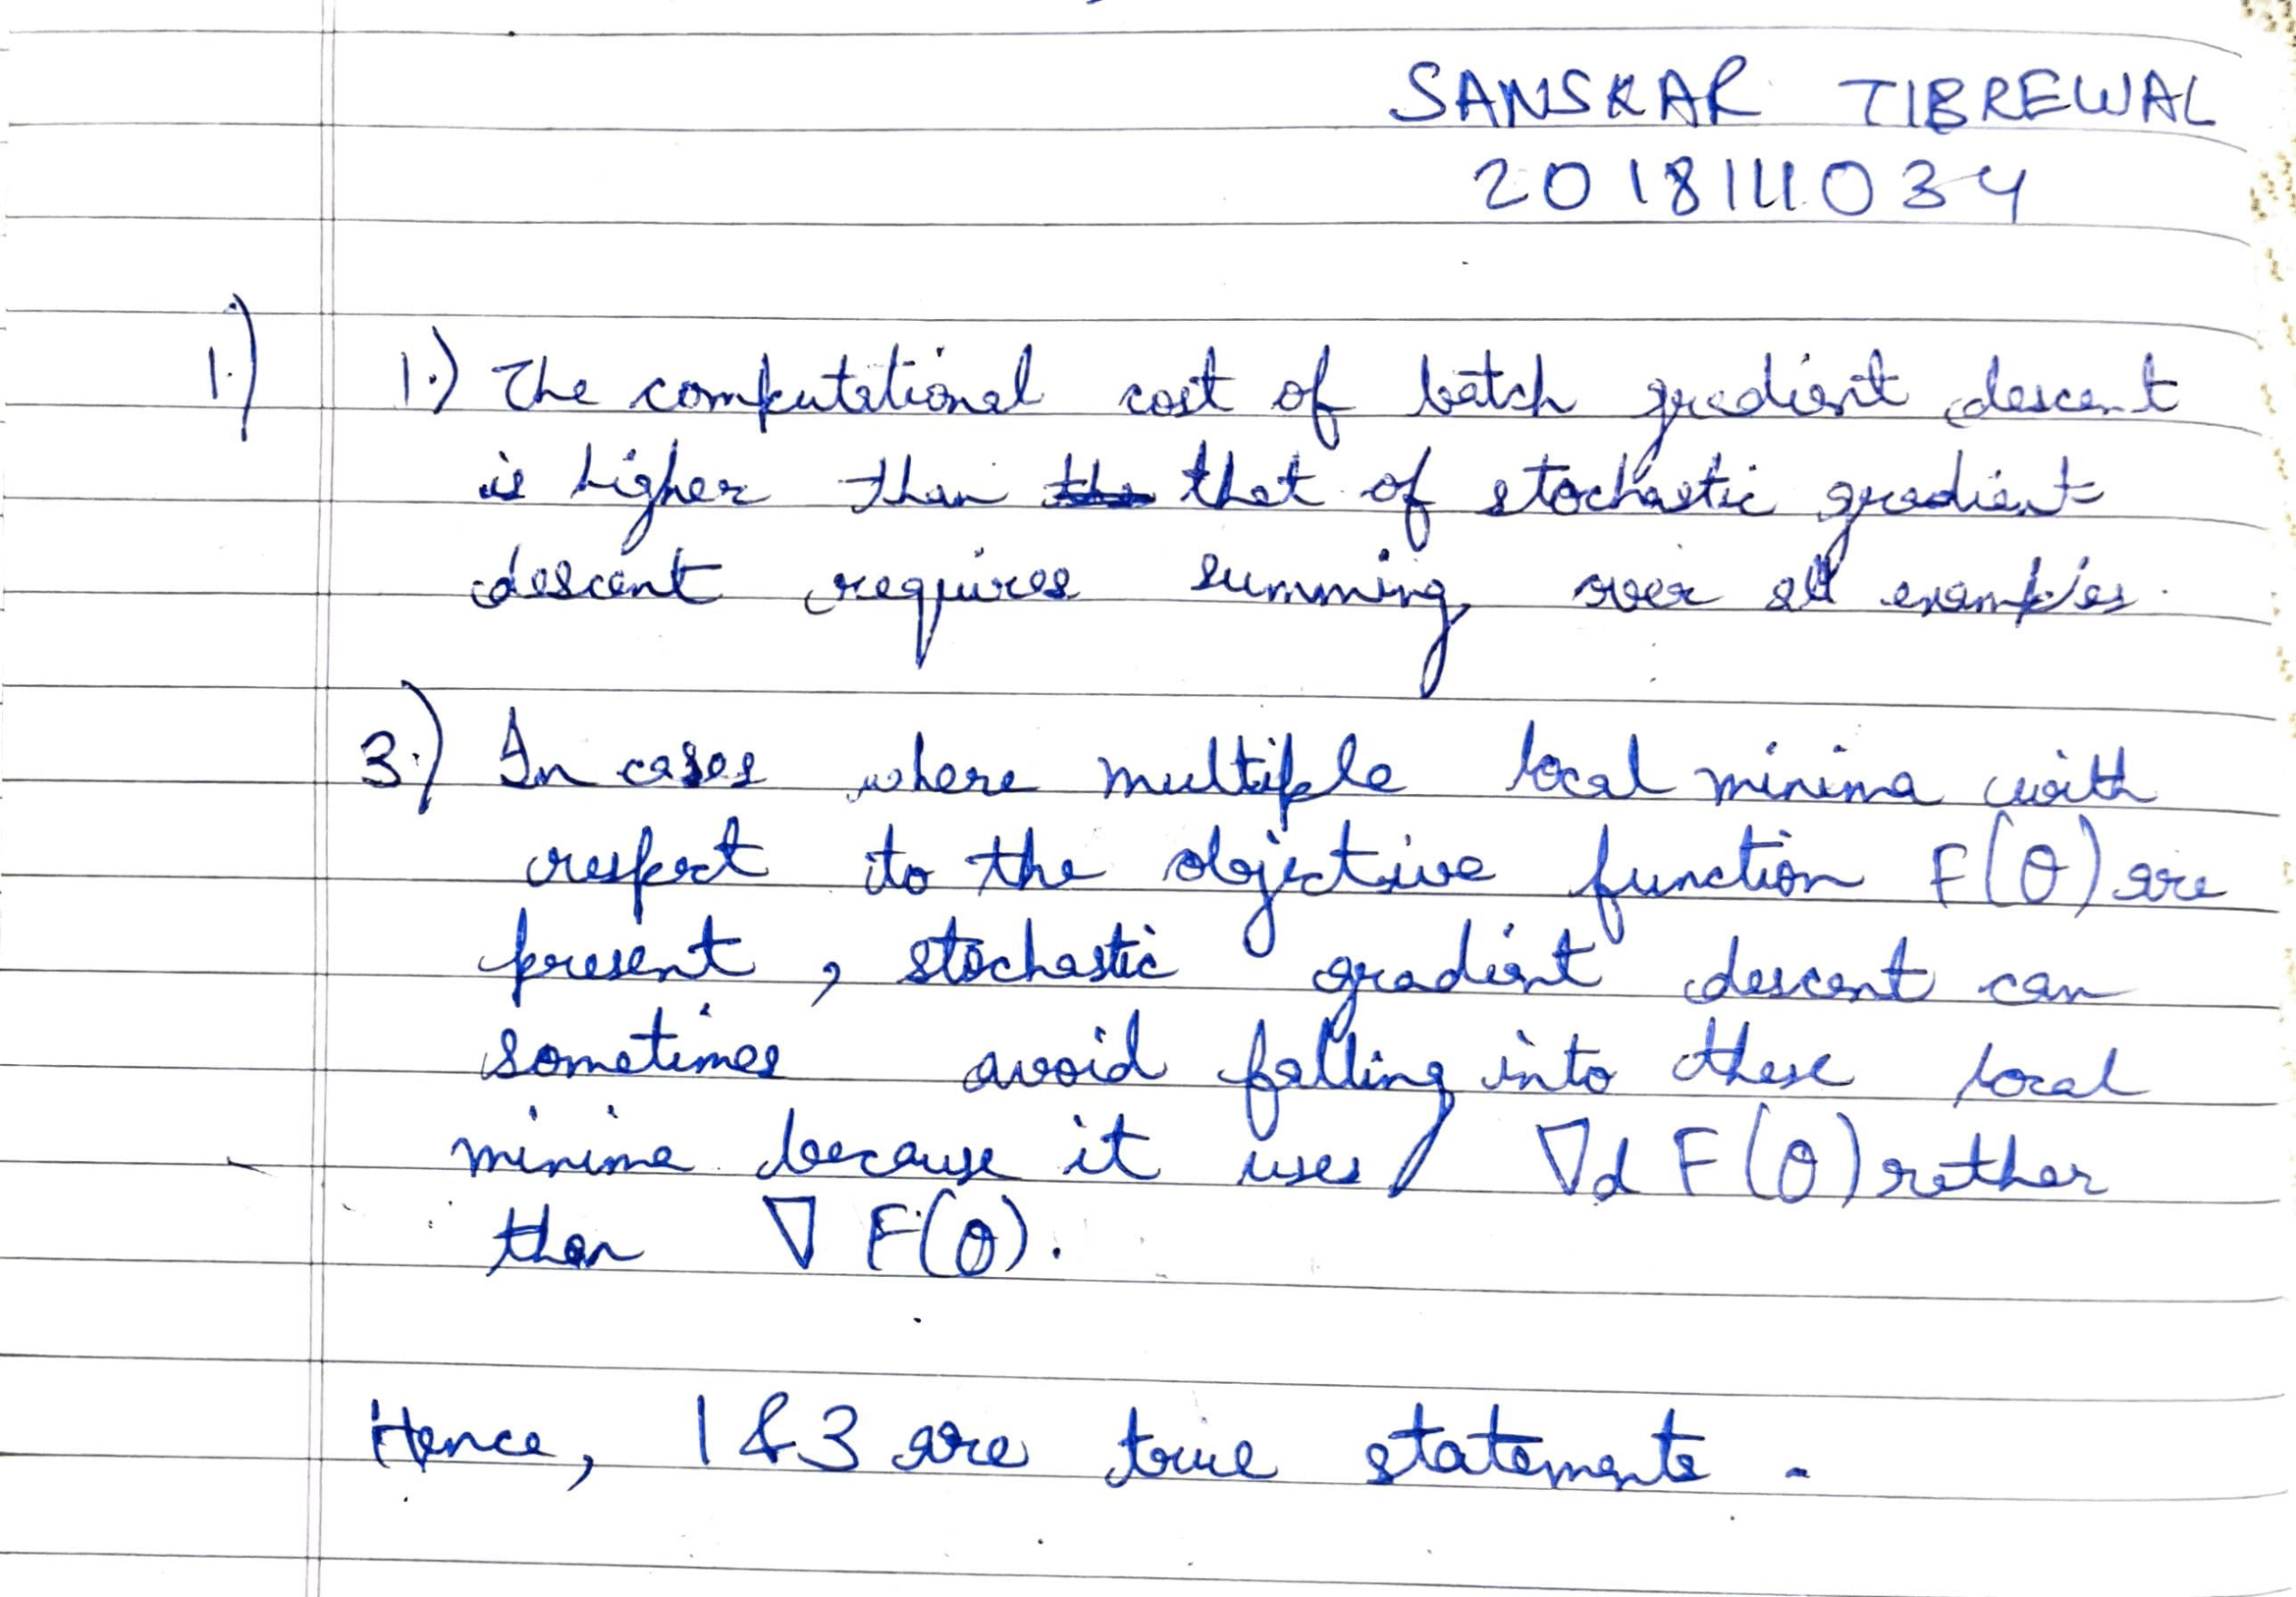 SANSKAR TIBREWAL
201811034
1.) 1.) The computational cost of batch gradient descent
is higher than the that of stochastic gradient
descent requires summing over all examples.
3.) In cases where multiple local minima with
respect to the objective function F(θ) are
present, stochastic gradient descent can
sometimes avoid falling into these local
minima because it uses ∇d F(θ) rather
than ∇ F(θ).
Hence, 1 & 3 are true statements.